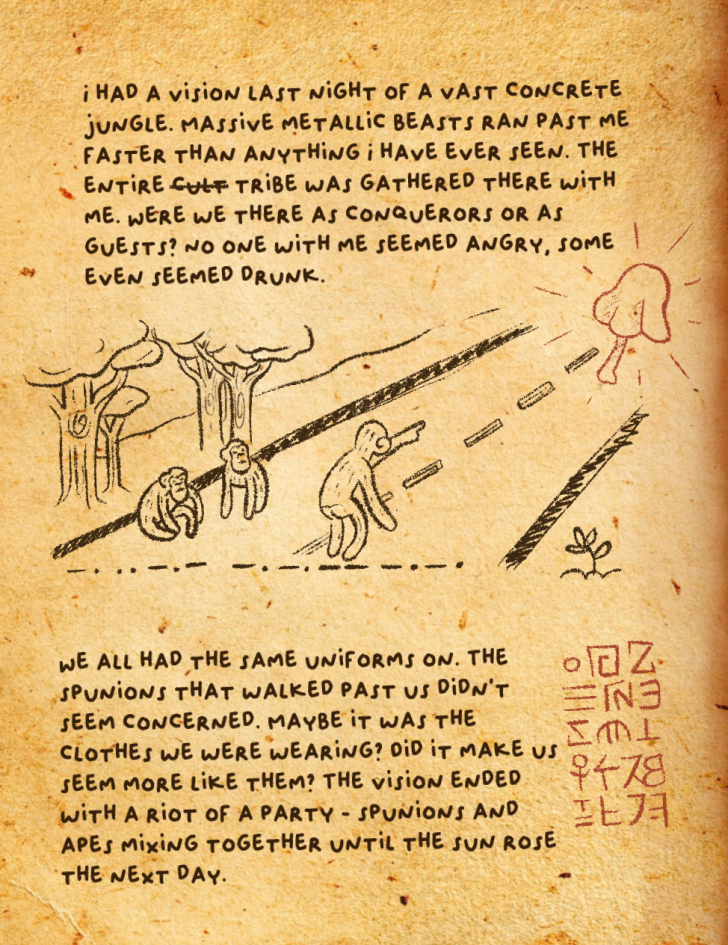 i HAD A ViSiON LAST NiGHT OF A VAST CONCRETE
jUNGLE. MASSiVE METALLiC BEASTS RAN PAST ME
FASTER THAN ANYTHiNG i HAVE EVER SEEN. THE
ENTiRE CULT TRiBE WAS GATHERED THERE WiTH
ME. WERE WE THERE AS CONQUERORS OR AS
GUESTS? NO ONE WiTH ME SEEMED ANGRY, SOME
EVEN SEEMED DRUNK.
WE ALL HAD THE SAME UNiFORMS ON. THE
SPUNiONS THAT WALKED PAST US DiDN'T
SEEM CONCERNED. MAYBE iT WAS THE
CLOTHES WE WERE WEARiNG? DiD iT MAKE US
SEEM MORE LiKE THEM? THE ViSiON ENDED
WiTH A RiOT OF A PARTY - SPUNiONS AND
APES MiXiNG TOGETHER UNTiL THE SUN ROSE
THE NEXT DAY.